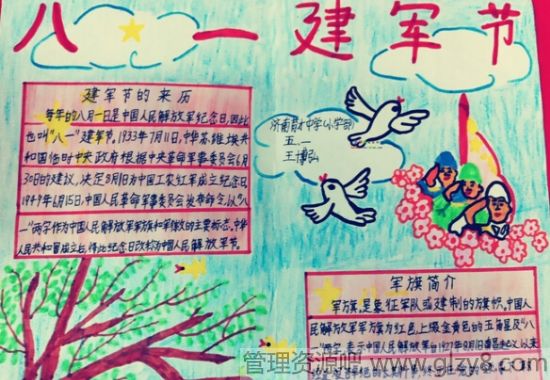 八一建军节
建军节的来历
每年的八月一日是中国人民解放军纪念日,因此
也叫"八一"建军节。1933年7月11日,中华苏维埃共
和国临时中央政府根据中央革命军事委员会6月
30日的建议,决定8月1日为中国工农红军成立纪念日。
1949年6月15日,中国人民革命军事委员会发布命令,以"八
一"两字作为中国人民解放军军旗和军徽的主要标志。中华
人民共和国成立后,将此纪念日改称为中国人民解放军建军节。
济南育才中学(小学部)
五.一
王博弘
军旗简介
军旗,是象征军队或建制的旗帜,中国人
民解放军军旗为红色上缀金黄色的五角星及"八
一"两字,表示中国人民解放军自1927年8月1日南昌起义以来
管理资源吧 www.glzy8.com